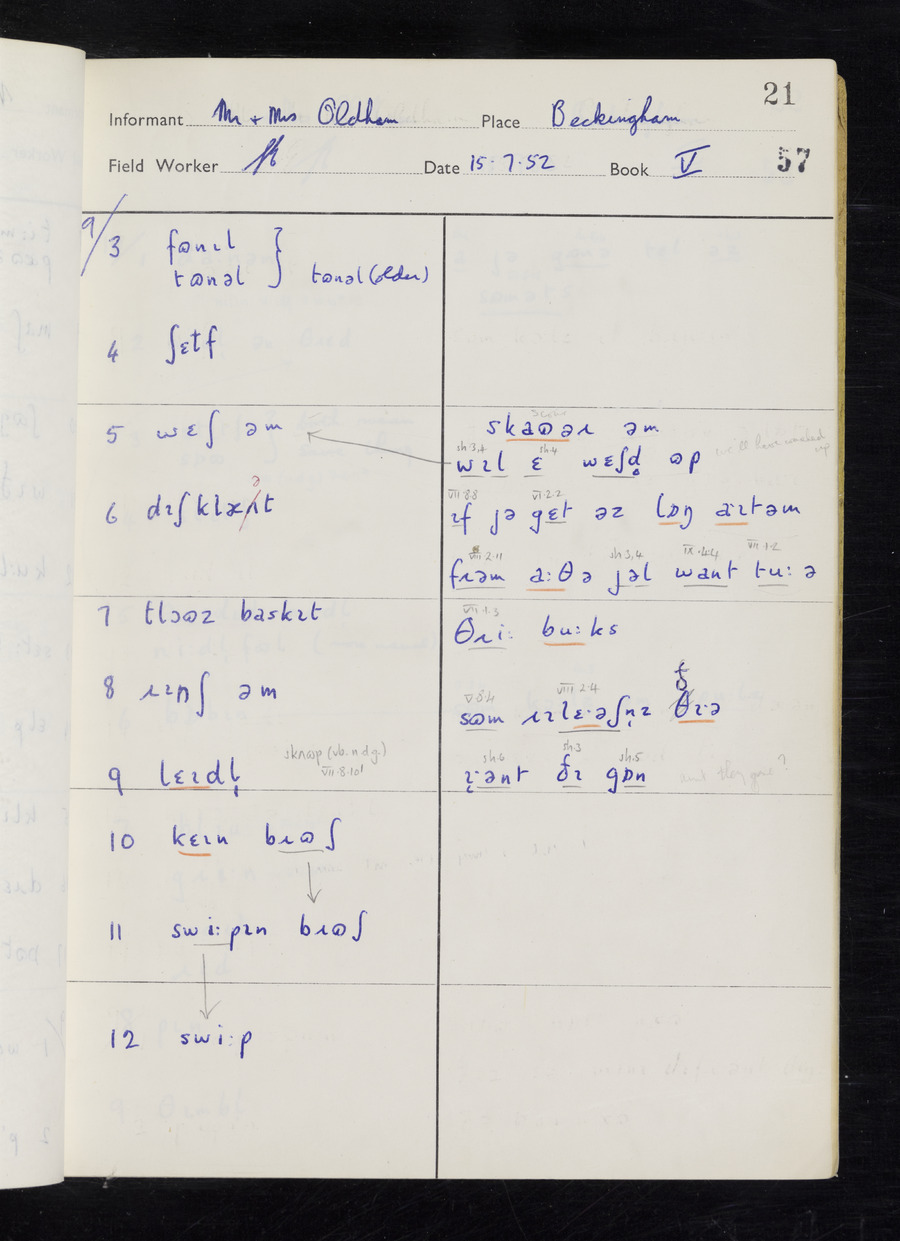 21
Informant Mr + Mrs Oldham Place Beckingham
Field Worker Date 15.7.52 Book V 57
9/
3 fɷnɪl }
tɷnəl } tɷnəl (older)
4 ʃɛtf
5 wɛʃ əm
6 dɪʃklaət
7 tlɔɷz baskɪt
8 ɹɪnʃ əm
sknɷp (vb. n d g.)
VII.8.10!
9 lɛɪdl̩
10 kɛɪn bɹɷʃ
11 swi:pɪn bɹɷʃ
12 swi:p
skaɷəɹ əm
sh.3,4 sh.4 we'll have washed up
wɪl ɛ wɛʃd̥ ɷp
VII.8.8 VI.2.2
ɪf jə gɛt əz lɒŋ a:ɪtəm
VIII.2.11 sh 3,4 IX.4.4 VII.1.2
frəm a:θə jəl want tu: ə
VII.1.3
θɹi: bu:ks
V.8.4 VIII.2.4
sɷm ɹɪlɛ·əʃn̩z ðɪ·ə
sh.6 sh.3 sh.5
ɪ·ənt ðɪ gɒn and they gone?